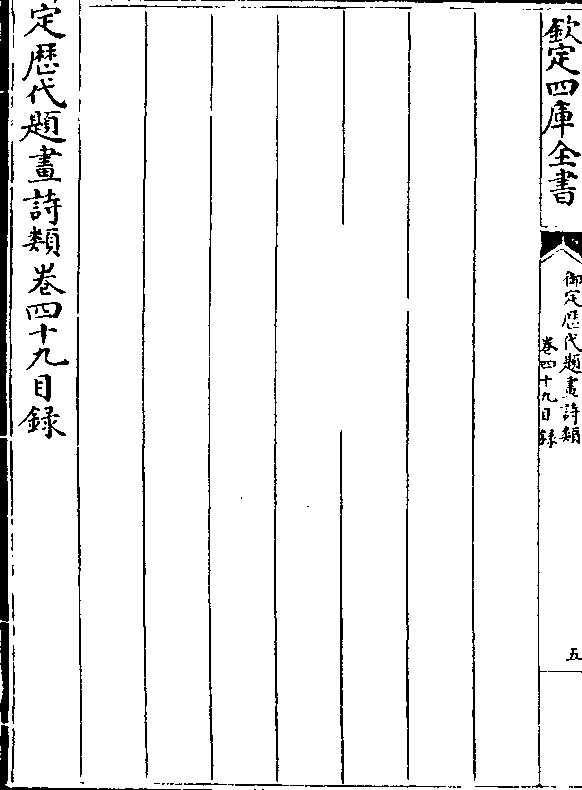 欽定四庫全書
御定歴代題畫詩類
卷四十九目録
五
定歴代題畫詩類卷四十九目録